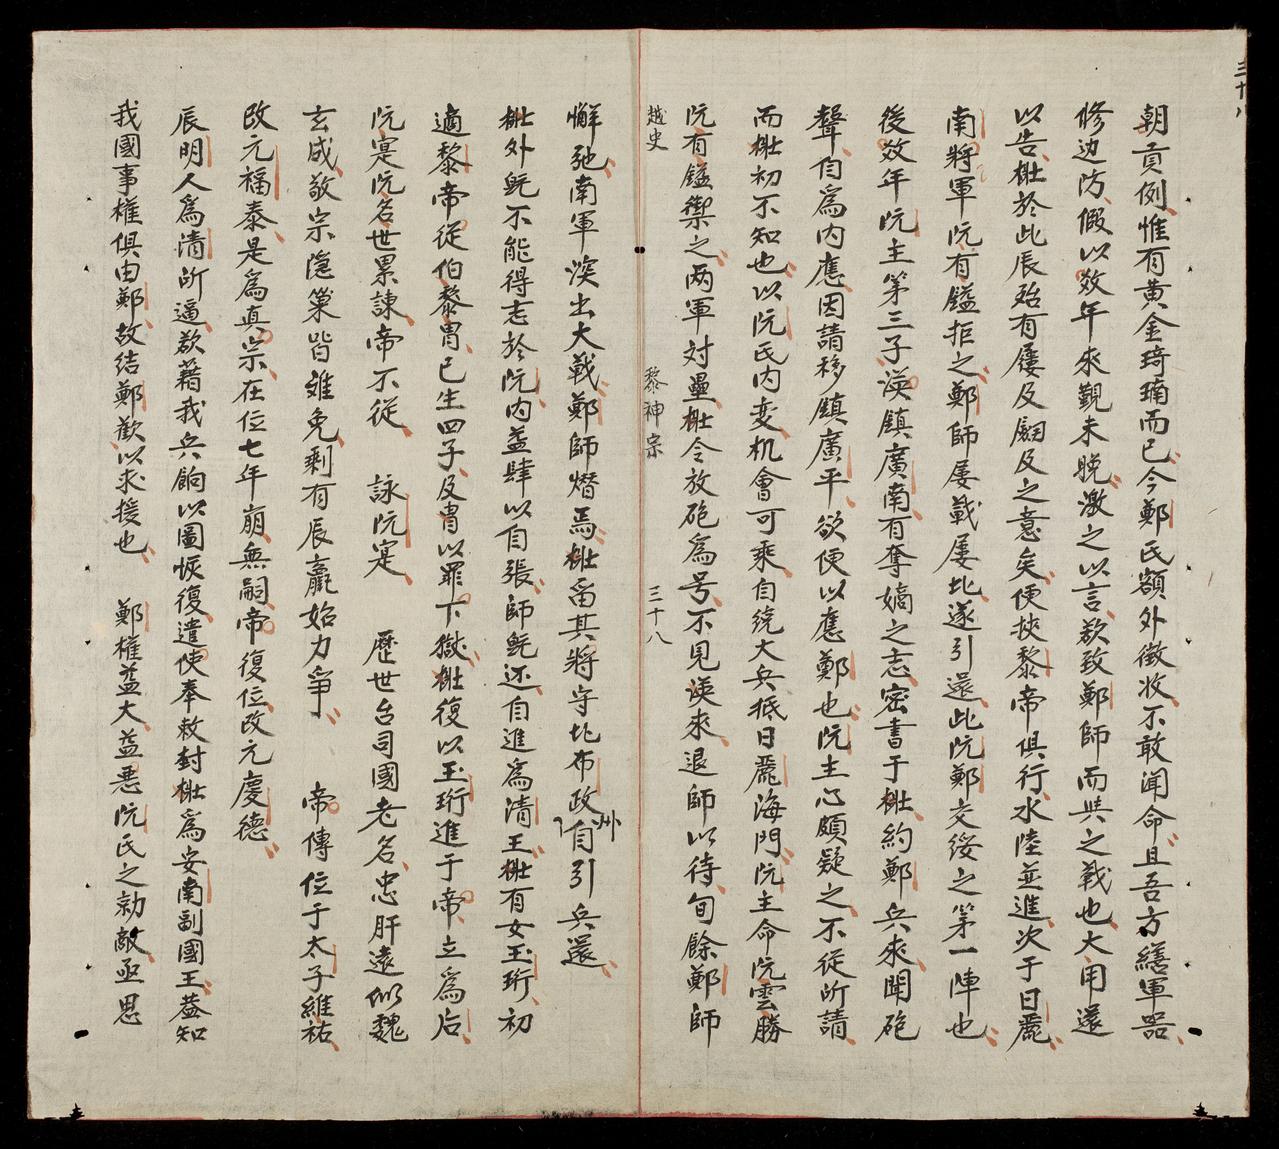 三十八
朝貢例惟有黄金琦瑀而已今鄭氏額外徵收不敢闻命且吾方繕軍器
修边防假以数年來覲未晚激之以言欲致鄭師而與之戰也大用還
以告梉於此辰殆有屢及剧及之意矣便挾黎帝俱行水陸並進次于日麗
南將軍阮有鎰拒之鄭師屡戰屡北遂引還此阮鄭交綏之第一陣也
後数年阮主第三子渶鎮廣南有奪嫡之志密書于梉約鄭兵來聞砲
聲自為内應因請移鎮廣平欲便以應鄭也阮主心頗疑之不從所請
而梉初不知也以阮氏内变机會可乘自統大兵抵日麗海門阮主命阮雲勝
阮有鎰禦之两軍対壘梉令放砲為号不見渶來退師以待旬餘鄭師
越史 黎神宗 三十八
懈弛南軍突出大戰鄭師熸焉梉畱其將守北布政州自引兵還
梉外既不能得志於阮内益肆以自張師既还自進為清王梉有女玉珩初
適黎帝從伯黎冑已生四子及冑以罪下獄梉復以玉珩進于帝立為后
阮寔阮名世累諫帝不從 詠阮寔 歷世台司國老名忠肝遠似魏
玄成敬宗隱巢皆难免剩有辰嬴始力爭 帝傳位于太子維祐
改元福泰是為真宗在位七年崩無嗣帝復位改元慶德
辰明人為清所逼欲藉我兵餉以圖恢復遣使奉敕封梉為安南副國王葢知
我國事權俱由鄭故结鄭歡以求援也 鄭權益大益悪阮氏之勍敵亟思